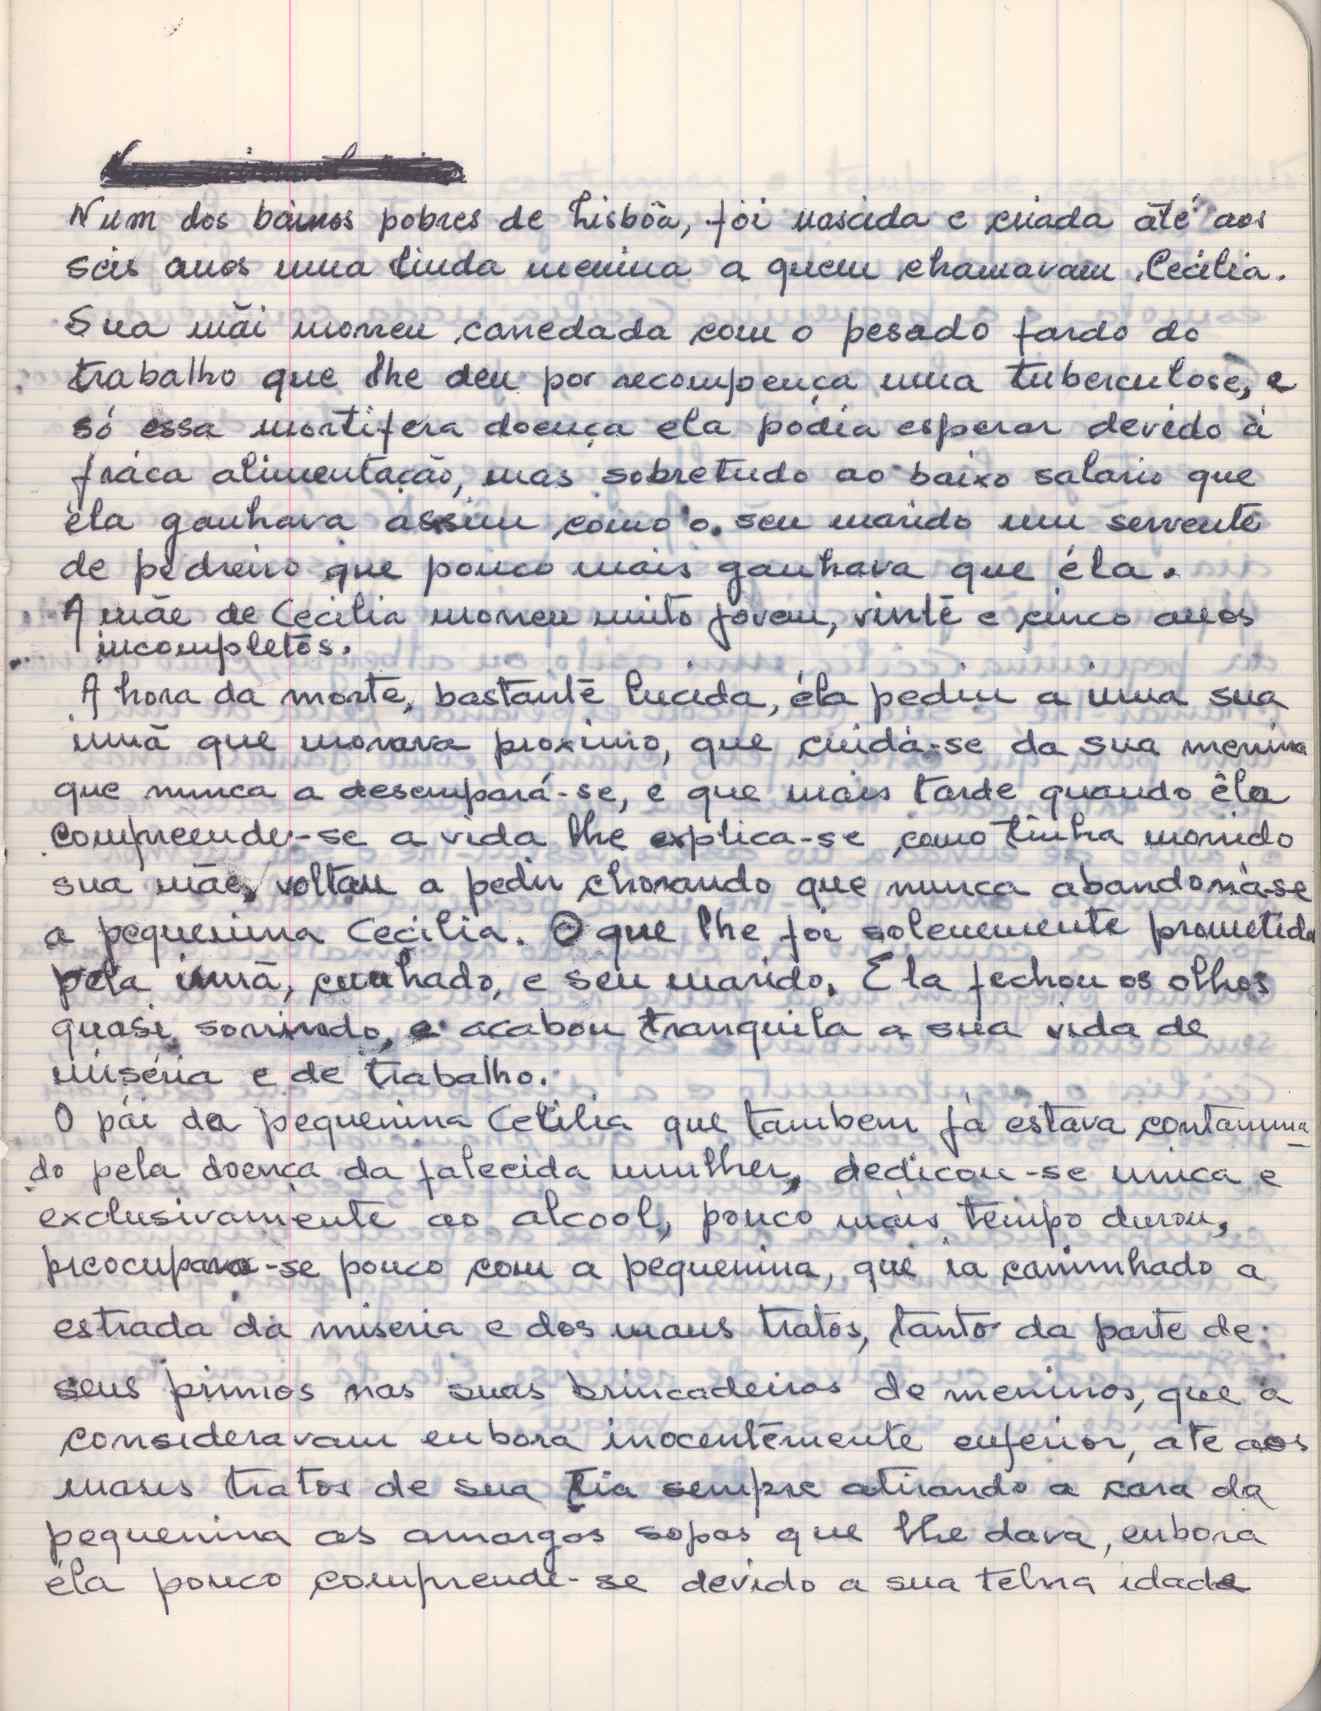 Num dos bairros pobres de Lisbôa, foi nascida e criada até aos
seis anos uma linda menina a quem chamavam Cecilia.
Sua mãi morreu carredada com o pesado fardo do
trabalho que lhe deu por recompença uma tuberculose, e
só essa mortifera doença ela podia esperar devido á
fráca alimentação, mas sobretudo ao baixo salario que
éla ganhava assim como o seu marido um servente
de pedreiro que pouco mais ganhava que éla.
A mãe de Cecilia morreu muito jovem, vinte e cinco anos
incompletos.
A hora da morte, bastante lucida, éla pediu a uma sua
irmã que morava proximo, que cuidá-se da sua menina
que nunca a desempará-se, e que mais tarde quando êla
compreende-se a vida lhe explica-se como tinha morrido
sua mãe, voltou a pedir chorando que nunca abandoná-se
a pequenina Cecilia. O que lhe foi solenemente prometido
pela irmã, cunhado, e seu marido. Ela fechou os olhos
quasi sorrindo, e acabou tranquila a sua vida de
miséria e de trabalho.
O pái da pequenina Cecilia que tambem já estava contamina
do pela doença da falecida mulher, dedicou-se unica e
exclusivamente ao alcool, pouco mais tempo durou,
preocupava-se pouco com a pequenina, que ia caminhado a
estrada da miseria e dos maus tratos, tanto da parte de
seus primos nas suas brincadeiras de meninos, que a
consideravam enbora inocentemente enferior, ate aos
maus tratos de sua tia sempre atirando a cara da
pequenina as amargas sopas que lhe dava, enbora
éla pouco comprende-se devido a sua telna idade